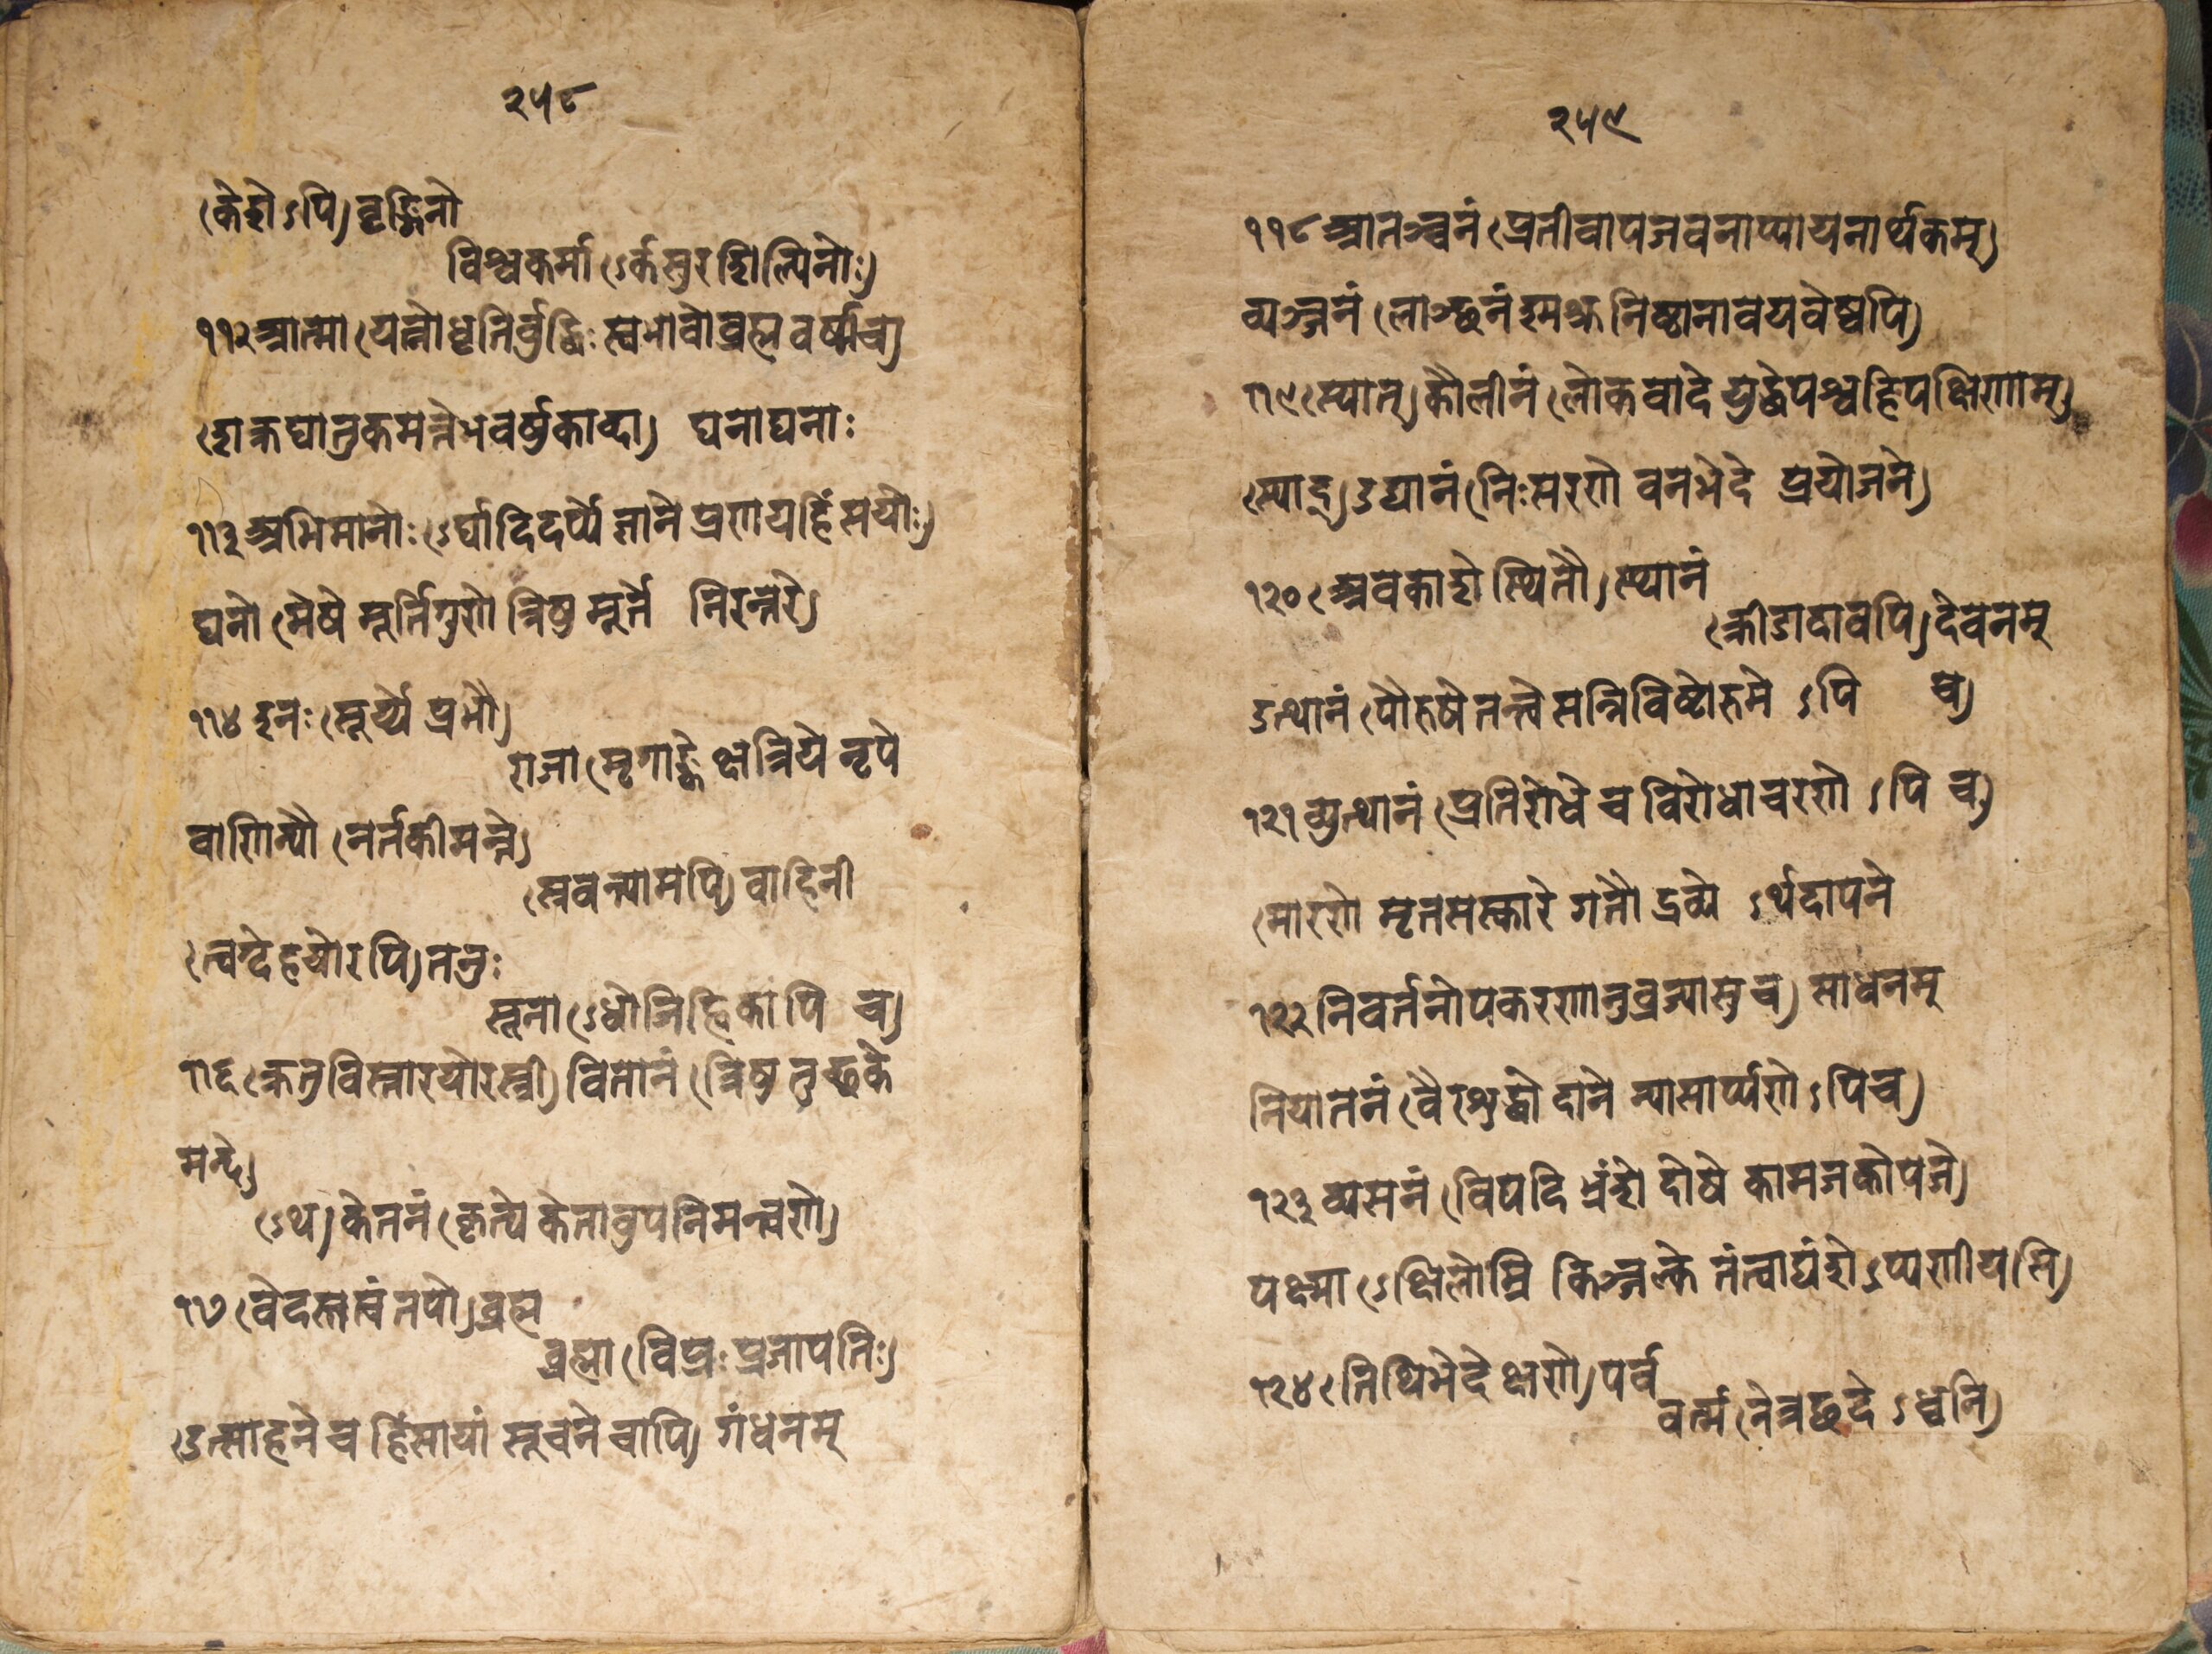 २५८
(केशेऽपि) वृजिनो
विश्वकर्मा (ऽर्कसुरशिल्पिनोः)
११२ आत्मा (यत्नोधृतिर्वुद्धिः स्वभावोव्रह्मवर्ष्मच)
(शक्रघातुकमत्तेभवर्षुकाव्दा) घनाघनाः
११३ अभिमानोः (ऽर्घादिदर्प्पे ज्ञाने प्रणयहिंसयोः)
घनो (मेघे मूर्तिगुणे त्रिषु मूर्ते निरन्तरे)
११४ इनः (सूर्य्ये प्रभौ)
राजा (मृगाङ्के क्षत्रिये नृपे
वाणिन्यौ (नर्तकीमत्ते)
(स्रवन्त्यामपि) वाहिनी
(त्वग्देहयोरपि) तनुः
सूना (ऽधोजिह्विकापि च)
११६ (क्रतुविस्तारयोरस्त्री) वितानं (त्रिषु तुच्छके
मन्दे)
(ऽथ) केतनं (कृत्ये केतावुपनिमन्त्रणे)
११७ (वेदस्तत्त्वं तपो) व्रह्म
व्रह्मा (विप्रः प्रजापतिः)
(उत्साहने च हिंसायां सूचने चापि) गंधनम्
२५९
११८ आतञ्चनं (प्रतीवापजवनाप्यायनार्थकम्)
व्यञ्जनं (लाञ्छनं श्मश्रु निष्ठानावयवेष्वपि)
११९ (स्यात्) कौलीनं (लोकवादे युद्धेपश्वहिपक्षिणाम्)
(स्याद्) उद्यानं (निःसरणे वनभेदे प्रयोजने)
१२० (अवकाशे स्थितौ) स्थानं
(क्रीडादावपि) देवनम्
उत्थानं (पौरुषे तन्त्रे सन्निविष्टोद्गमे ऽपि च)
१२१ व्युत्थानं (प्रतिरोधे च विरोधाचरणे ऽपि च)
(मारणे मृतसस्कारे गतौ द्रव्ये ऽर्थदापने
१२२ निवर्तनोपकरणानुव्रज्यासु च) साधनम्
नियातनं (वैरशुद्धौ दाने न्यासार्प्पणे ऽपिच)
१२३ व्यसनं (विपदि भ्रंशे दोषे कामजकोपजे)
पक्ष्मा (ऽक्षिलोम्नि किञ्जल्के तंत्वाद्यंशेऽप्यणीयसि)
१२४ (तिथिभेदे क्षणे) पर्व
वर्त्म (नेत्रछदे ऽध्वनि)